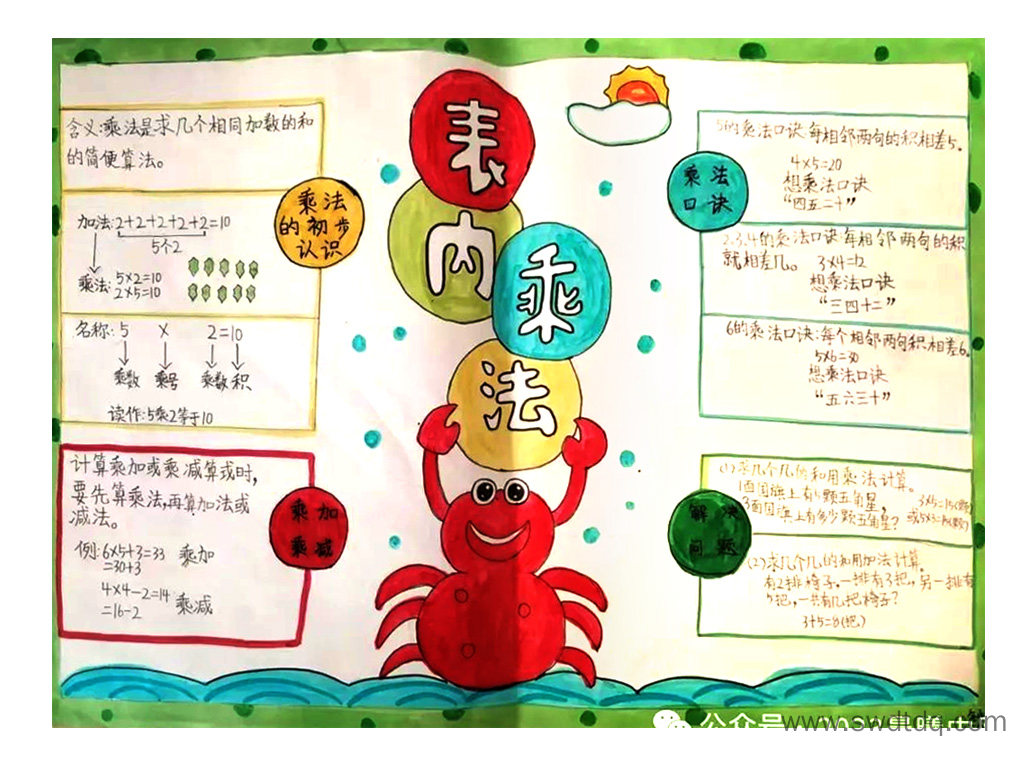 表内乘法
含义:乘法是求几个相同加数的和
的简便算法。
乘法
的初步
认识
加法:2+2+2+2+2=10
5个2
乘法:5×2=10
2×5=10
名称:5 × 2=10
乘数 乘号 乘数 积
读作:5乘2等于10
计算乘加或乘减算式时,
要先算乘法,再算加法或
减法。
乘加
乘减
例:6×5+3=33 乘加
=30+3
4×4-2=14 乘减
=16-2
乘法
口诀
5的乘法口诀:每相邻两句的积相差5。
4×5=20
想乘法口诀
“四五二十”
2.3.4的乘法口诀每相邻两句的积
就相差几。 3×4=12
想乘法口诀
“三四十二”
6的乘法口诀:每个相邻两句积相差6。
5×6=30
想乘法口诀
“五六三十”
解决
问题
(1)求几个几的和用乘法计算。
1面国旗上有5颗五角星,
3面国旗上有多少颗五角星?
3×5=15(颗)
或5×3=15(颗)
(2)求几个几的和用加法计算。
有2排椅子.一排有3把,另一排有
5把,一共有几把椅子?
3+5=8(把)
公众号
www.swdtdq.com